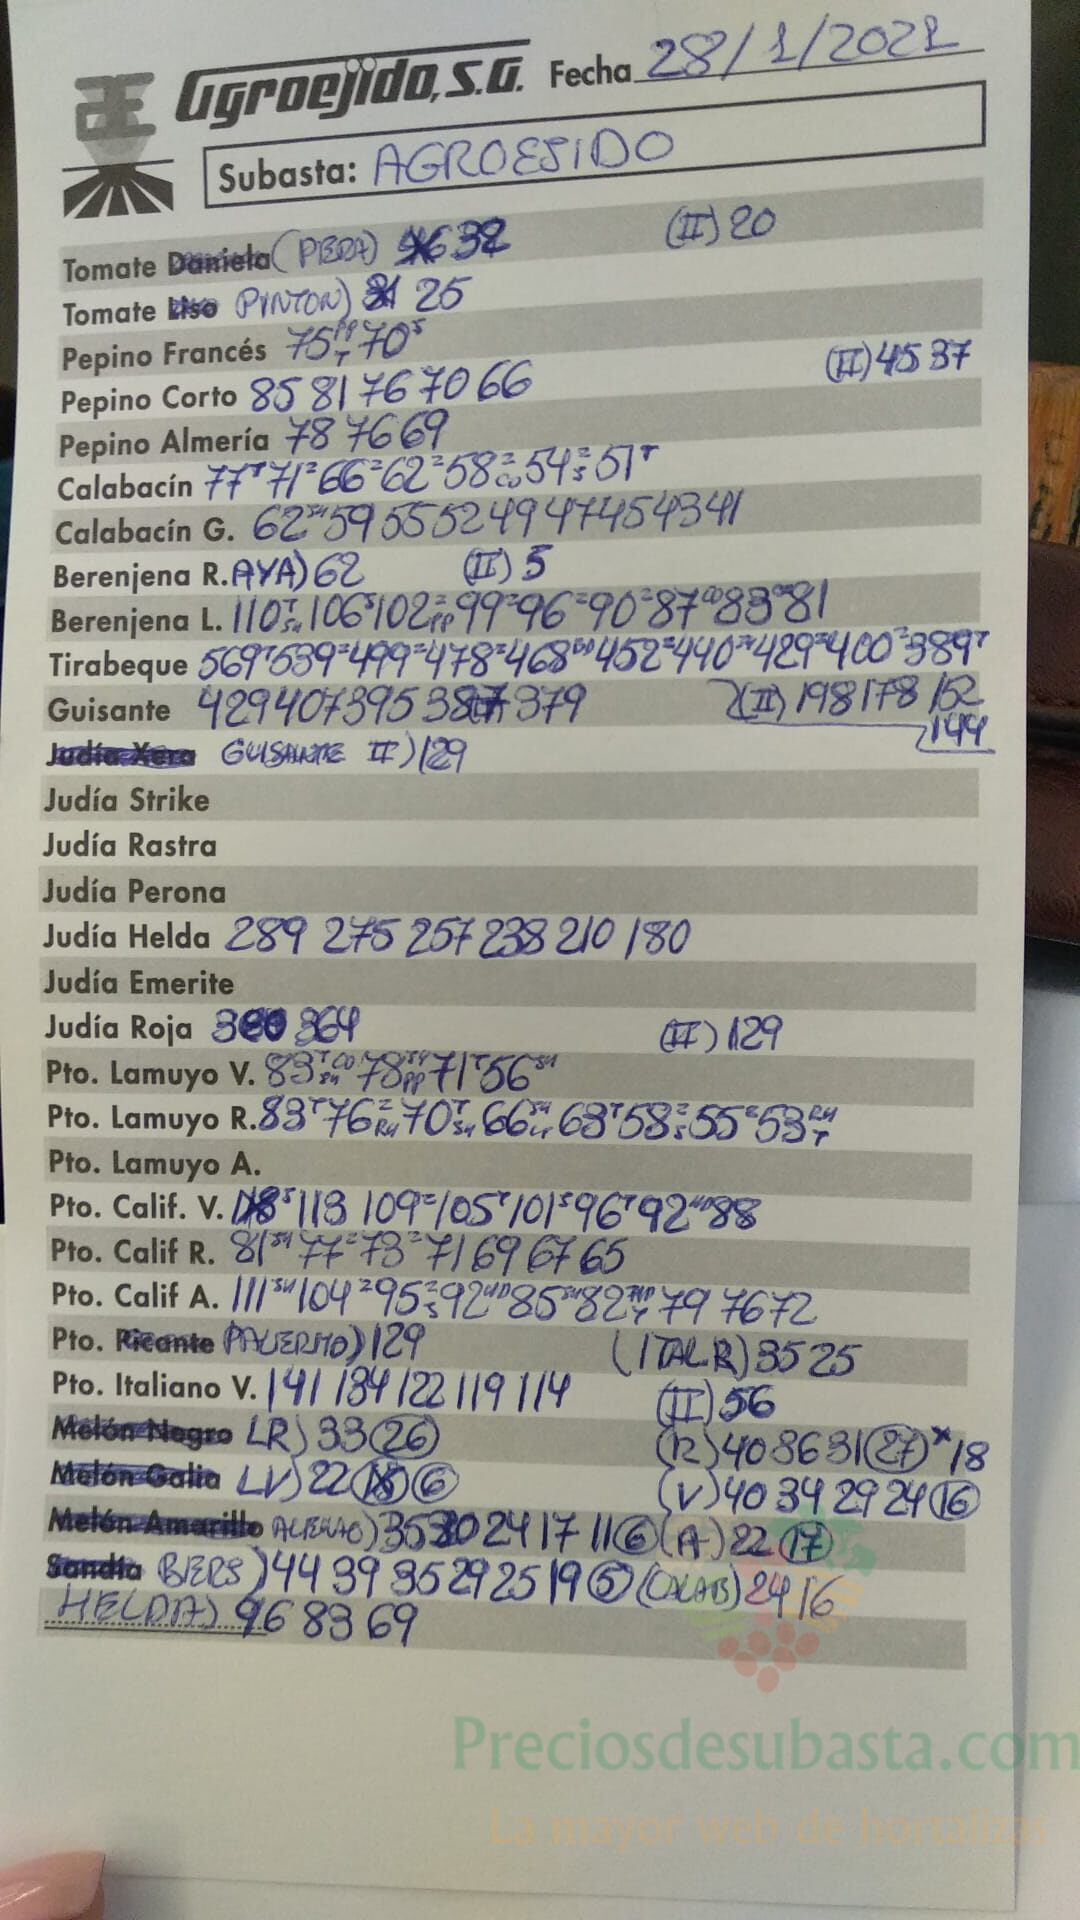 Agroejido, S.A. Fecha 28/1/2021
Subasta: AGROEJIDO
Tomate Daniela (PERA) 32 (II) 20
Tomate Liso PINTON) 25
Pepino Francés 75 70
Pepino Corto 85 81 76 70 66 (II) 45 37
Pepino Almería 78 76 69
Calabacín 77 71 66 62 58 54 51
Calabacín G. 62 59 55 52 49 47 45 43 41
Berenjena R. AYA) 62 (II) 5
Berenjena L. 110 106 102 99 96 90 87 83 81
Tirabeque 569 539 499 478 468 452 440 429 400 389
Guisante 429 407 395 387 379 (II) 198 178 152
144
Judía Xera GUISANTE II) 129
Judía Strike
Judía Rastra
Judía Perona
Judía Helda 289 275 257 238 210 180
Judía Emerite
Judía Roja 364 (II) 129
Pto. Lamuyo V. 83 78 71 56
Pto. Lamuyo R. 83 76 70 66 63 58 55 53
Pto. Lamuyo A.
Pto. Calif. V. 113 109 105 101 96 92 88
Pto. Calif R. 81 77 73 71 69 67 65
Pto. Calif A. 111 104 95 92 85 82 79 76 72
Pto. Picante PALERMO) 129 (ITAL R) 35 25
Pto. Italiano V. 141 134 122 119 114 (II) 56
Melón Negro LR) 33 26 (R) 40 36 31 27 * 18
Melón Galia LV) 22 6 (V) 40 34 29 24 16
Melón Amarillo 35 30 24 17 11 6 (A) 22 17
Sandía BERS) 44 39 35 29 25 19 5 (CALAB) 24 16
HELDA) 96 83 69
Preciosdesubasta.com
La mayor web de hortalizas